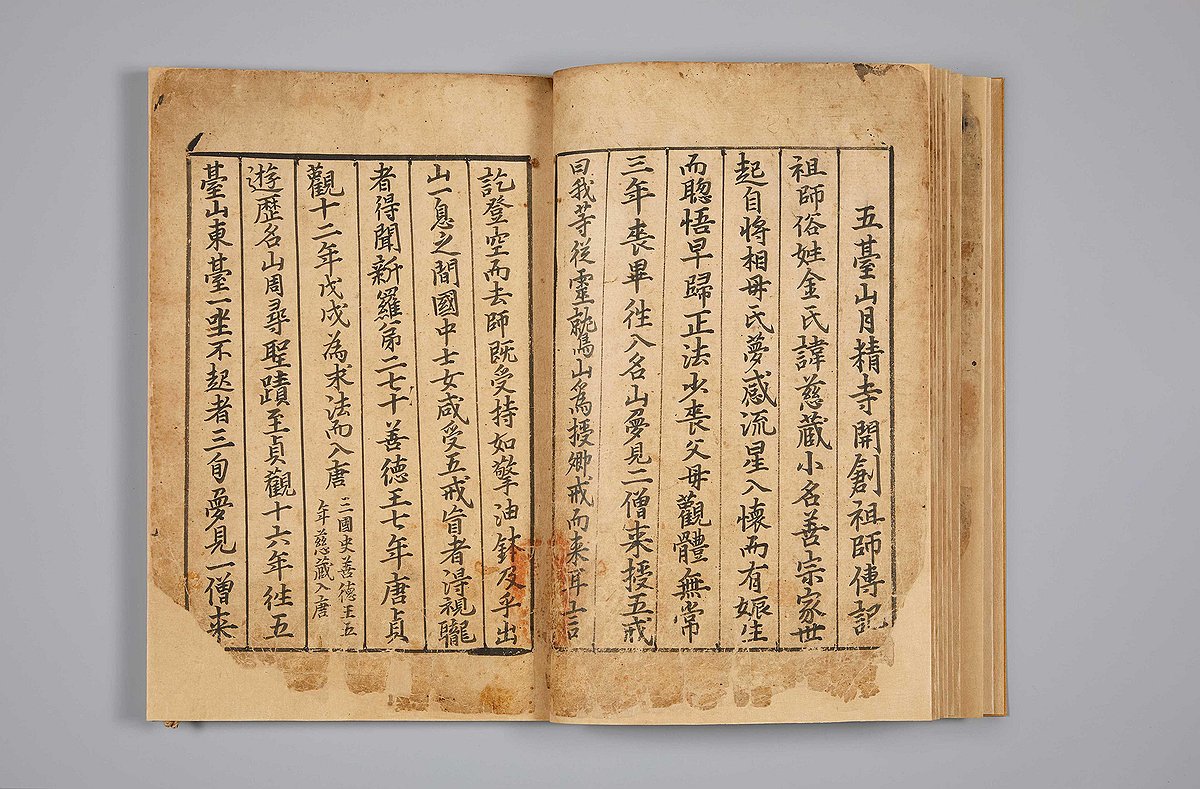 五臺山月精寺開創祖師傳記
祖師俗姓金氏諱慈藏小名善宗家世
起自將相母氏夢感流星入懷而有娠生
而聰悟早歸正法少喪父母觀體無常
三年喪畢徃入名山夢見二僧來授五戒
曰我等從靈鷲山為授卿戒而來耳言
訖登空而去師既受持如擎油鉢及乎出
山一息之間國中士女咸受五戒盲者淂視聾
者得聞新羅第二十七善德王七年唐貞
觀十二年戊戌為求法而入唐
三國史善德王五
年慈藏入唐
遊歷名山周尋聖蹟至貞觀十六年徃五
臺山東臺一坐不起者三旬夢見一僧来